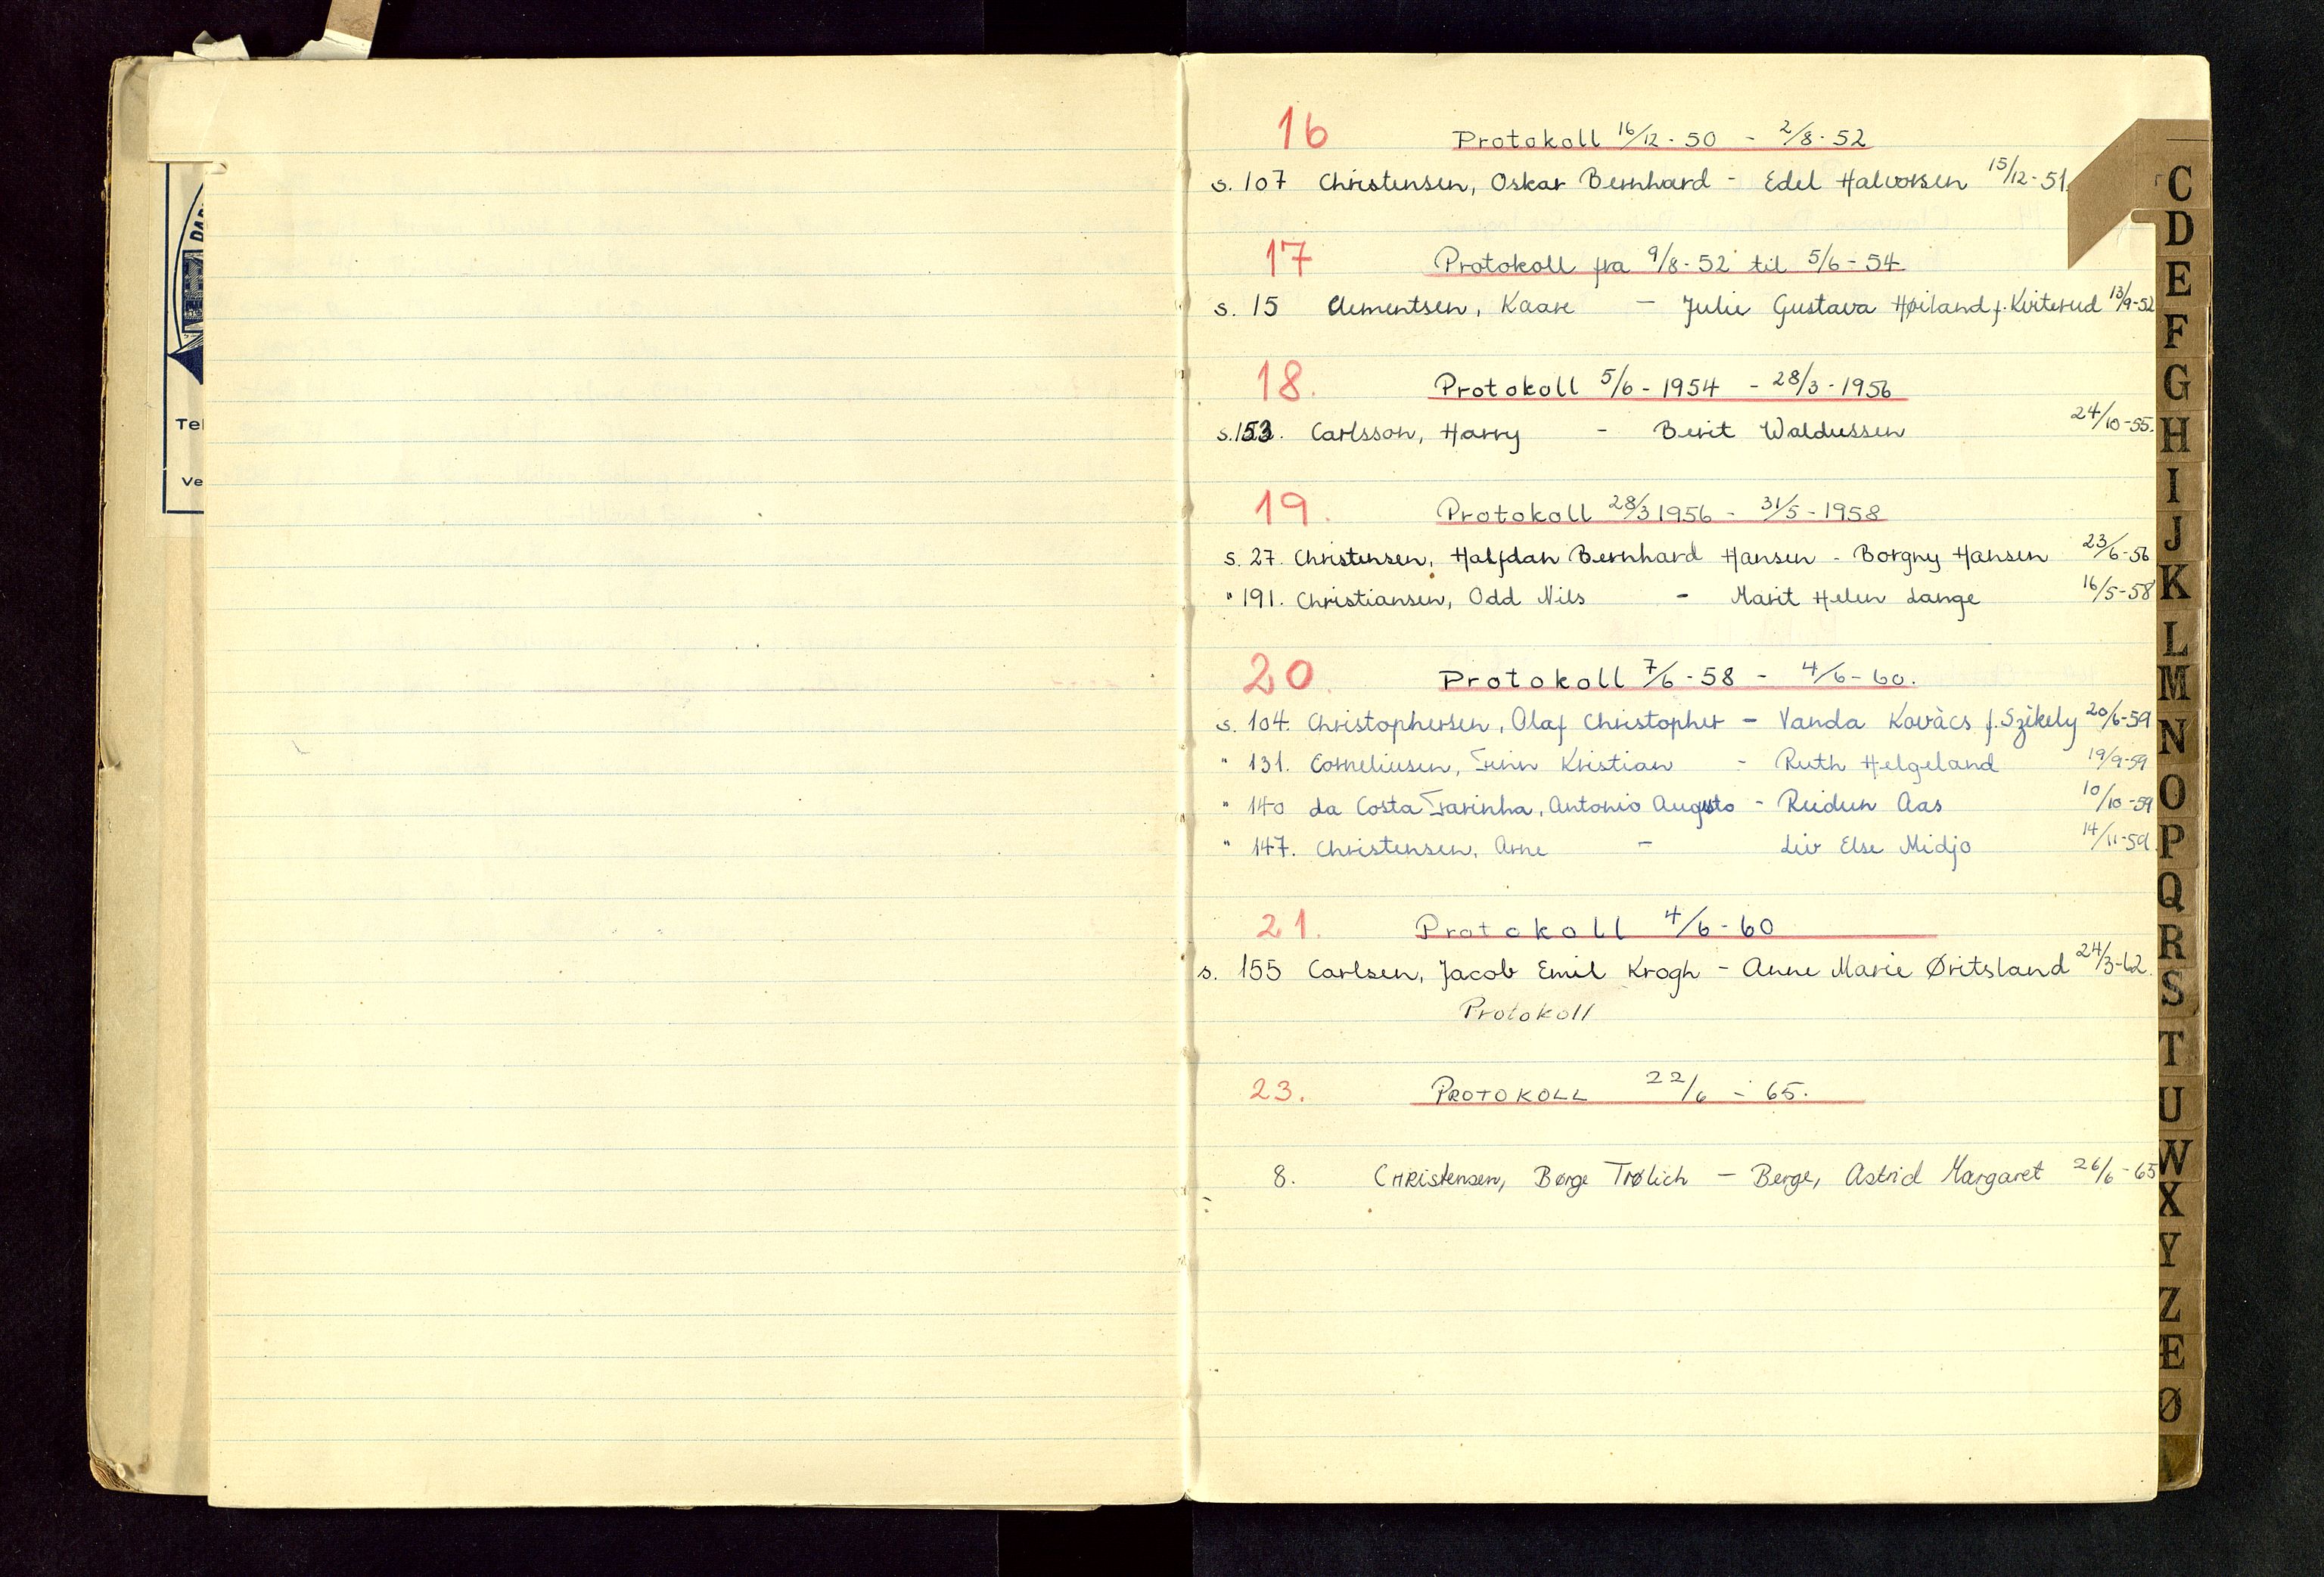 16 Protokoll 16/12-50 - 2/8-52
s. 107 Christensen, Oskar Bernhard - Edel Halvorsen 15/12-51
17 Protokoll fra 9/8-52 til 5/6-54
s. 15 Clementsen, Kaare - Julie Gustava Høiland f. Kviterud 13/9-52
18. Protokoll 5/6-1954 - 28/3-1956
s. 153. Carlsson, Harry - Berit Waldussen 24/10-55.
19. Protokoll 28/3 1956 - 31/5-1958
s. 27. Christensen, Halfdan Bernhard Hansen - Borgny Hansen 23/6-56
" 191. Christiansen, Odd Nils - Marit Helen Lange 16/5-58
20. Protokoll 7/6-58 - 4/6-60.
s. 104. Christophersen, Olaf Christopher - Vanda Kovàcs f. Szèkely 20/6-59
" 131. Corneliusen, Finn Kristian - Ruth Helgeland 19/9-59
" 140 da Costa Farinha, Antonio Augusto - Reidun Aas 10/10-59
" 147. Christensen, Arne - Liv Else Midjo 14/11-59.
21. Protokoll 4/6-60
s. 155 Carlsen, Jacob Emil Krogh - Anne Marie Øritsland 24/3-62.
Protokoll
23. PROTOKOLL 22/6 - 65.
8. CHRistensen, Børge Trølich - Berge, Astrid Margaret 26/6-65
C
D
E
F
G
H
I
J
K
L
M
N
O
P
Q
R
S
T
U
W
X
Y
Z
Æ
Ø
Tel
Ve